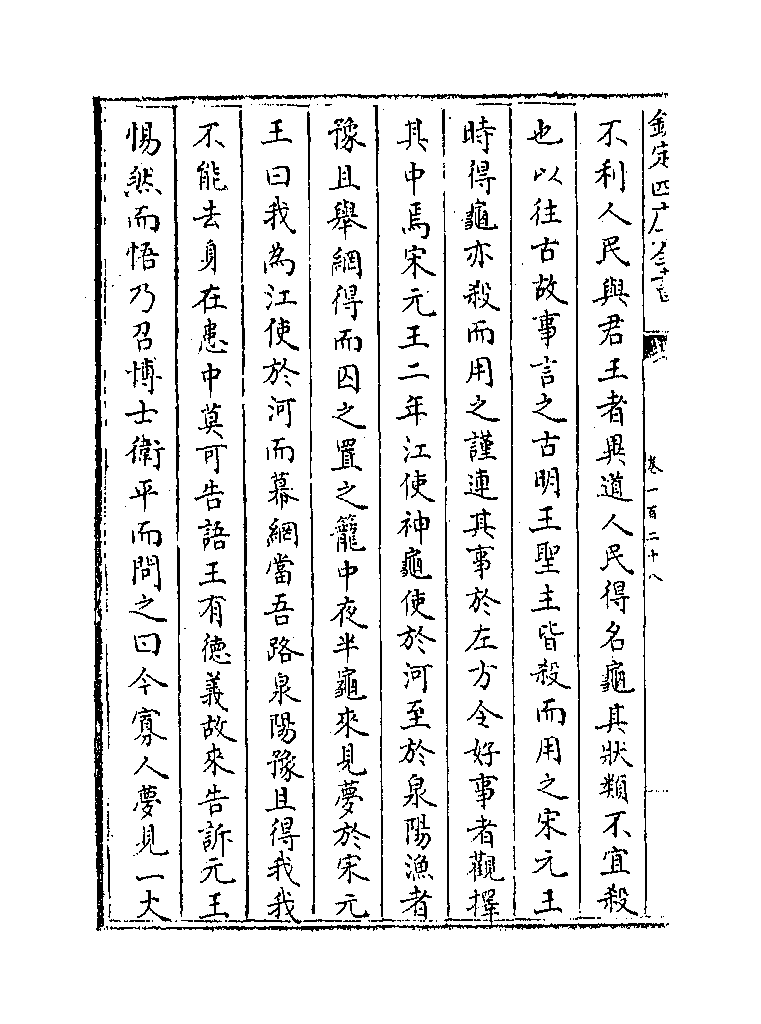 欽定四庫全書
卷一百二十八
不利人民與君王者異道人民得名龜其狀類不宜殺
也以往古故事言之古明王聖主皆殺而用之宋元王
時得龜亦殺而用之謹連其事於左方令好事者觀擇
其中焉宋元王二年江使神龜使於河至於泉陽漁者
豫且舉網得而囚之置之籠中夜半龜來見夢於宋元
王曰我為江使於河而幕網當吾路泉陽豫且得我我
不能去身在患中莫可告語王有德義故來告訴元王
惕然而悟乃召博士衛平而問之曰今寡人夢見一丈